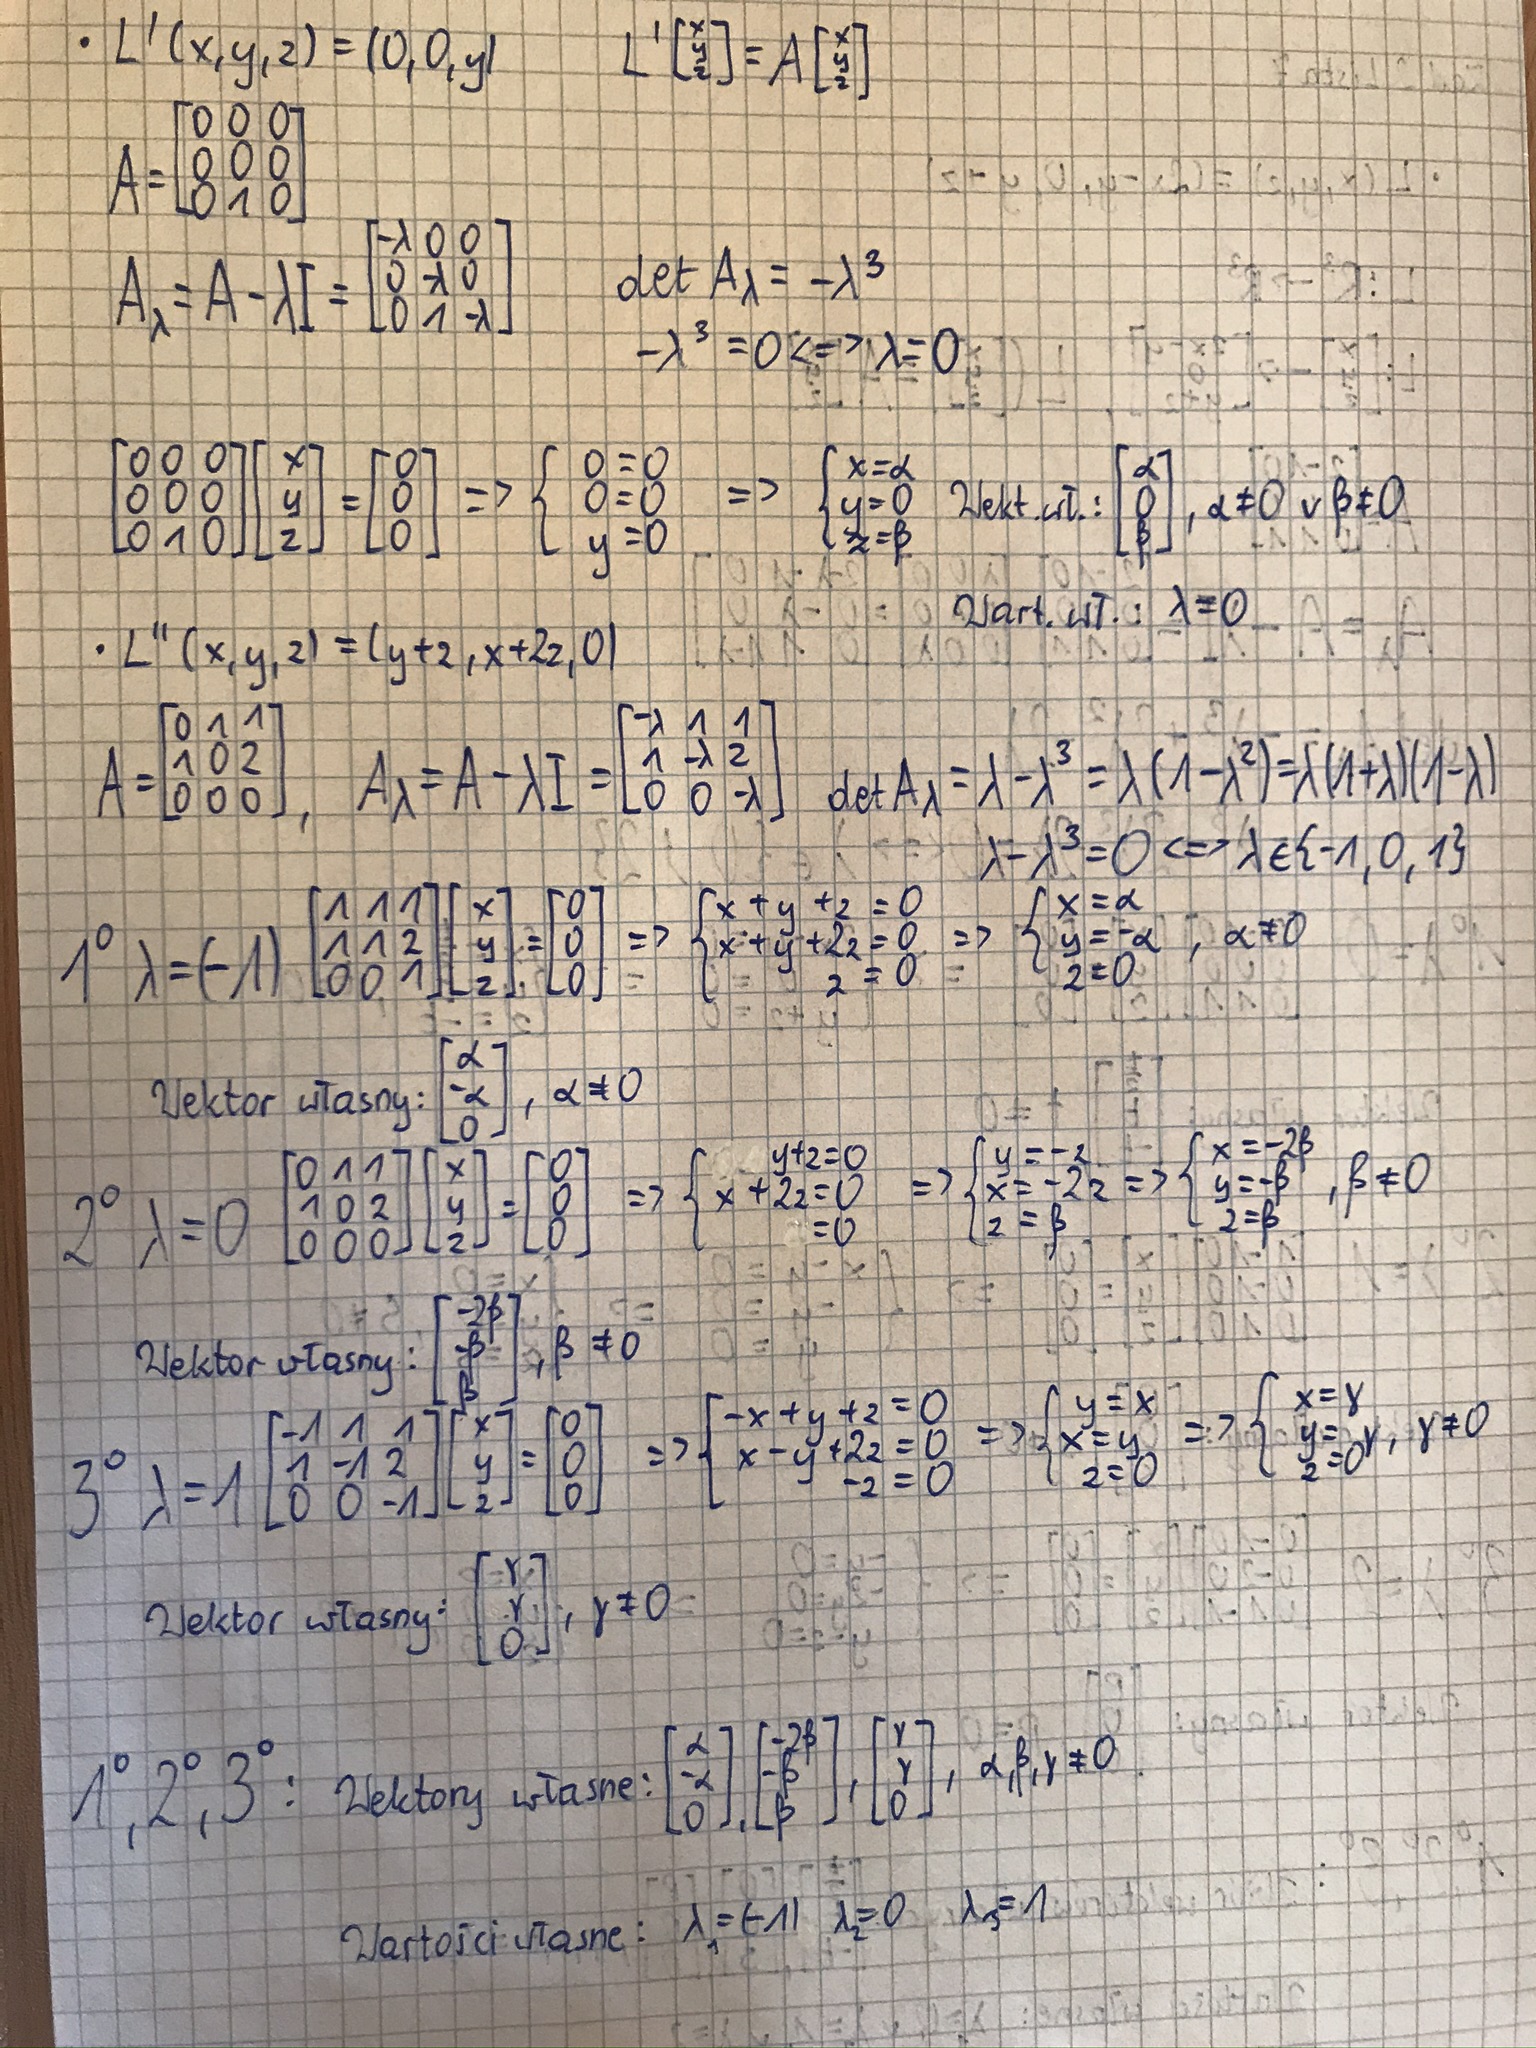 • L'(x,y,z) = (0,0,y)    L'[x y z] = A[x y z]
A = [0 0 0; 0 0 0; 0 1 0]
A_λ = A - λI = [-λ 0 0; 0 -λ 0; 0 1 -λ]    det A_λ = -λ³
-λ³ = 0 <=> λ = 0
[0 0 0; 0 0 0; 0 1 0] [x; y; z] = [0; 0; 0] => { 0=0; 0=0; y=0 => { x=α; y=0; z=β  Wekt. wł.: [α; 0; β], α≠0 v β≠0
Wart. wł.: λ=0
• L''(x,y,z) = (y+z, x+2z, 0)
A = [0 1 1; 1 0 2; 0 0 0], A_λ = A - λI = [-λ 1 1; 1 -λ 2; 0 0 -λ]  det A_λ = λ-λ³ = λ(1-λ²) = λ(1+λ)(1-λ)
λ-λ³ = 0 <=> λ∈{-1, 0, 1}
1° λ=(-1) [1 1 1; 1 1 2; 0 0 1] [x; y; z] = [0; 0; 0] => { x+y+z=0; x+y+2z=0; z=0 => { x=α; y=-α; z=0 , α≠0
Wektor własny: [α; -α; 0], α≠0
2° λ=0 [0 1 1; 1 0 2; 0 0 0] [x; y; z] = [0; 0; 0] => { y+z=0; x+2z=0; =0 => { y=-z; x=-2z; z=β => { x=-2β; y=-β; z=β , β≠0
Wektor własny: [-2β; -β; β], β≠0
3° λ=1 [-1 1 1; 1 -1 2; 0 0 -1] [x; y; z] = [0; 0; 0] => { -x+y+z=0; x-y+2z=0; -z=0 => { y=x; x=y; z=0 => { x=γ; y=γ; z=0 , γ≠0
Wektor własny: [γ; γ; 0], γ≠0
1°, 2°, 3°: Wektory własne: [α; -α; 0], [-2β; -β; β], [γ; γ; 0], α,β,γ≠0
Wartości własne: λ₁=(-1) λ₂=0 λ₃=1